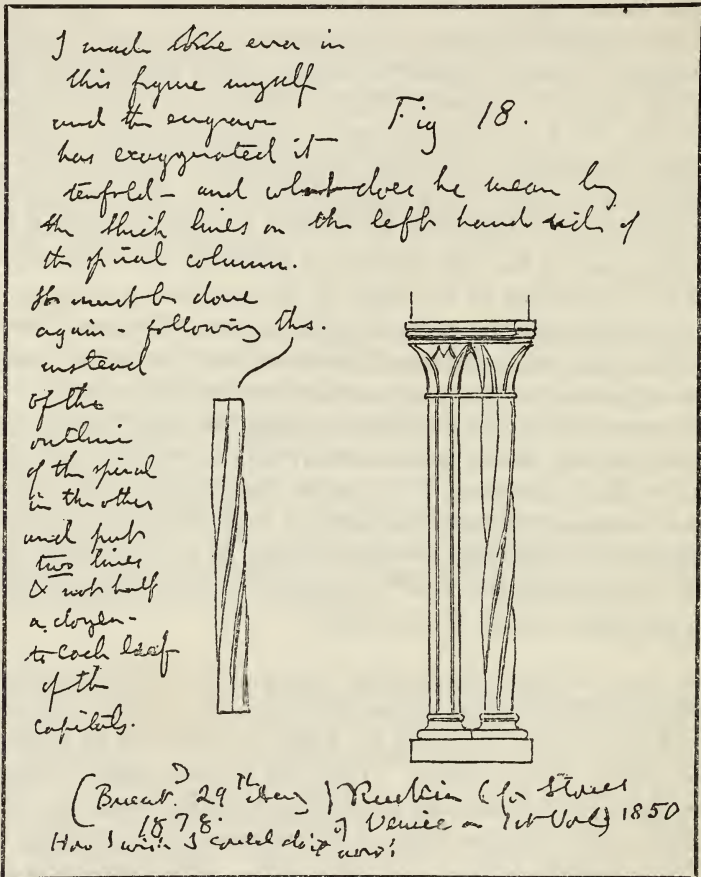 I made the error in
this figure myself
and the engraver
has exaggerated it
Fig 18.
tenfold - and what does he mean by
the thick lines on the left hand side of
the spiral column.
It must be done
again - following this.
instead
of the
outline
of the spiral
in the other
and put
two lines
& not half
a dozen -
to each leaf
of the
capitals.
(Brant. 29th Aug) Ruskin (for Stones
1878. of Venice 1st Vol) 1850
How I wish I could do it now!